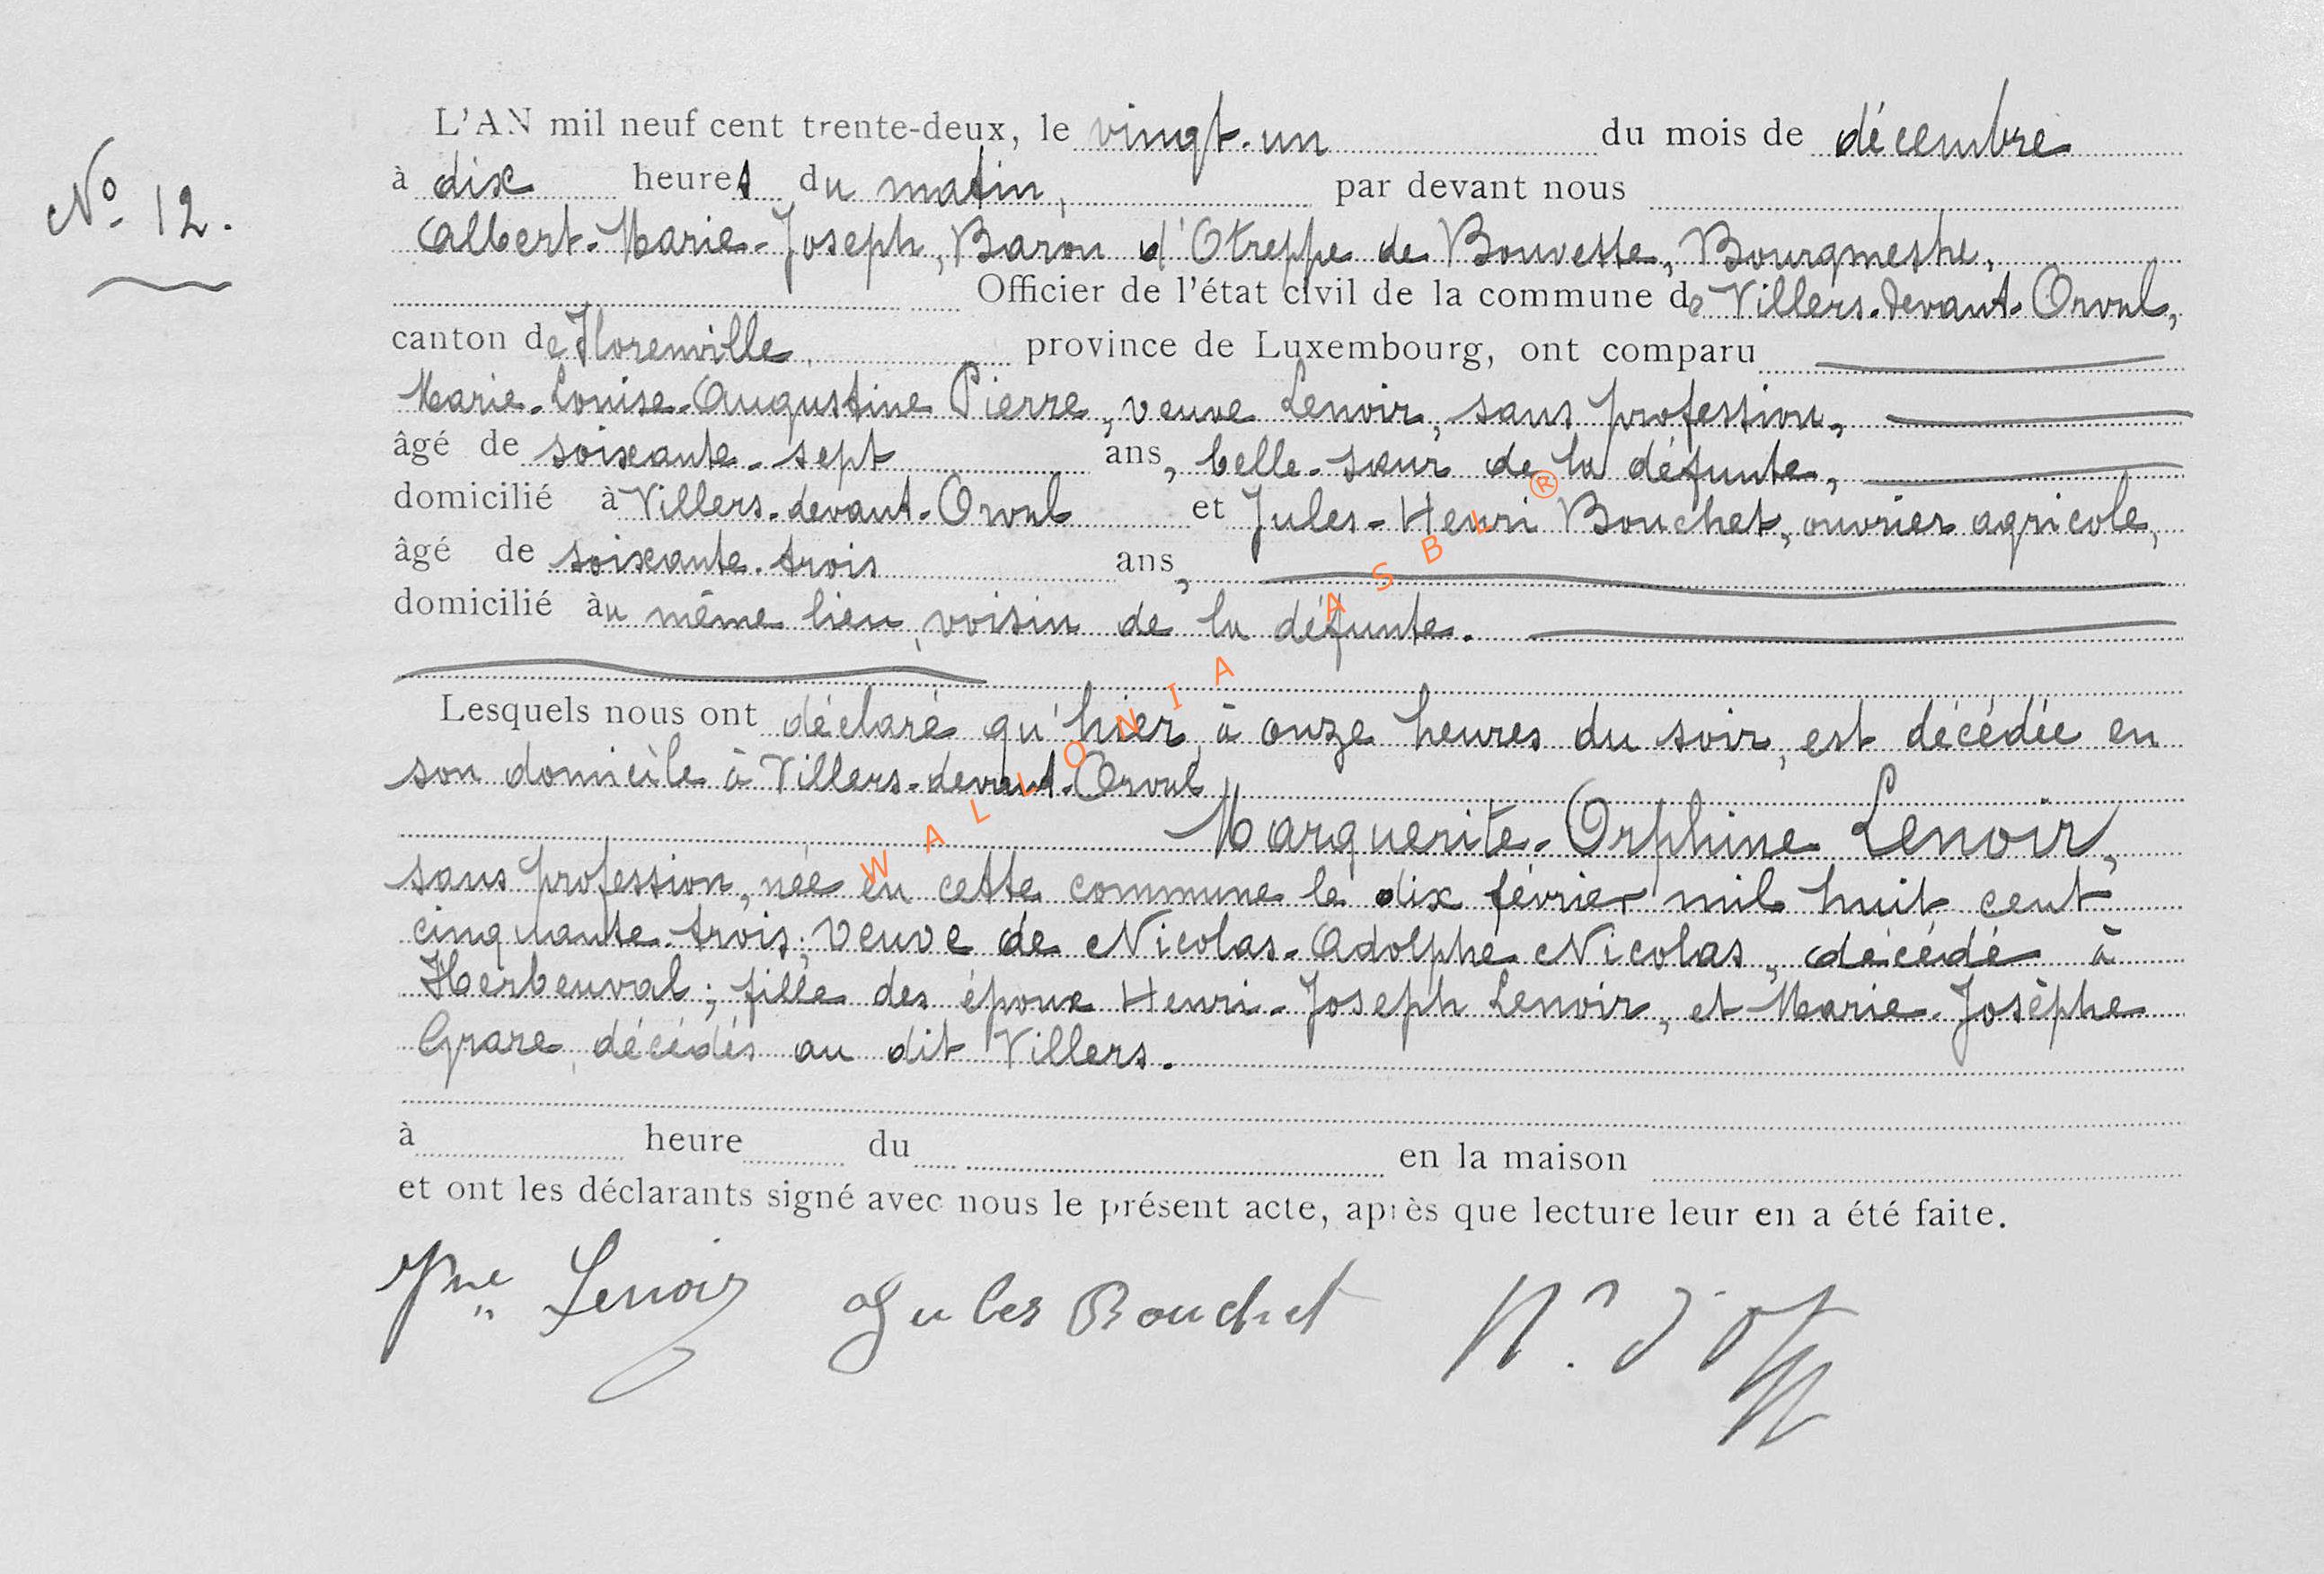 L'AN mil neuf cent trente-deux, le vingt-un du mois de décembre
No 12.
à dix heures du matin, par devant nous
Albert-Marie-Joseph, Baron d'Otreppe de Bouvette, Bourgmestre,
Officier de l'état civil de la commune de Villers-devant-Orval,
canton de Florenville, province de Luxembourg, ont comparu
Marie-Louise-Augustine Pierre, veuve Lenoir, sans profession,
âgé de soixante-sept ans, belle-sœur de la défunte,
domicilié à Villers-devant-Orval et Jules-Henri Bouchet, ouvrier agricole,
âgé de soixante-trois ans,
domicilié au même lieu, voisin de la défunte.
Lesquels nous ont déclaré qu'hier, à onze heures du soir, est décédée en
son domicile à Villers-devant-Orval
Marguerite-Orphine Lenoir,
sans profession, née en cette commune le dix février mil huit cent
cinquante-trois; veuve de Nicolas-Adolphe Nicolas, décédé à
Herbeuval; fille des époux Henri-Joseph Lenoir, et Marie-Josèphe
Grare, décédés au dit Villers.
à heure du en la maison
et ont les déclarants signé avec nous le présent acte, après que lecture leur en a été faite.
Lenoir Jules Bouchet
WALLONIA ASBL ®